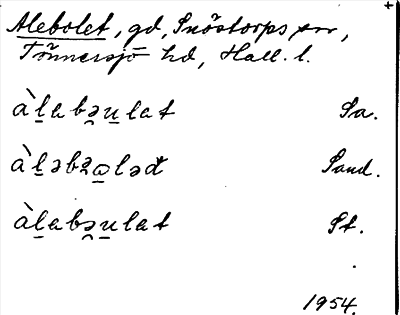 Alebolet, gd, Snöstorps sn,
Tönnersjö hd, Hall. l.
àl̠abə̯u̠lat Sa.
àl̠əbə̯ω̠ləđ Sand.
àl̠abə̯u̠lat St.
1954.